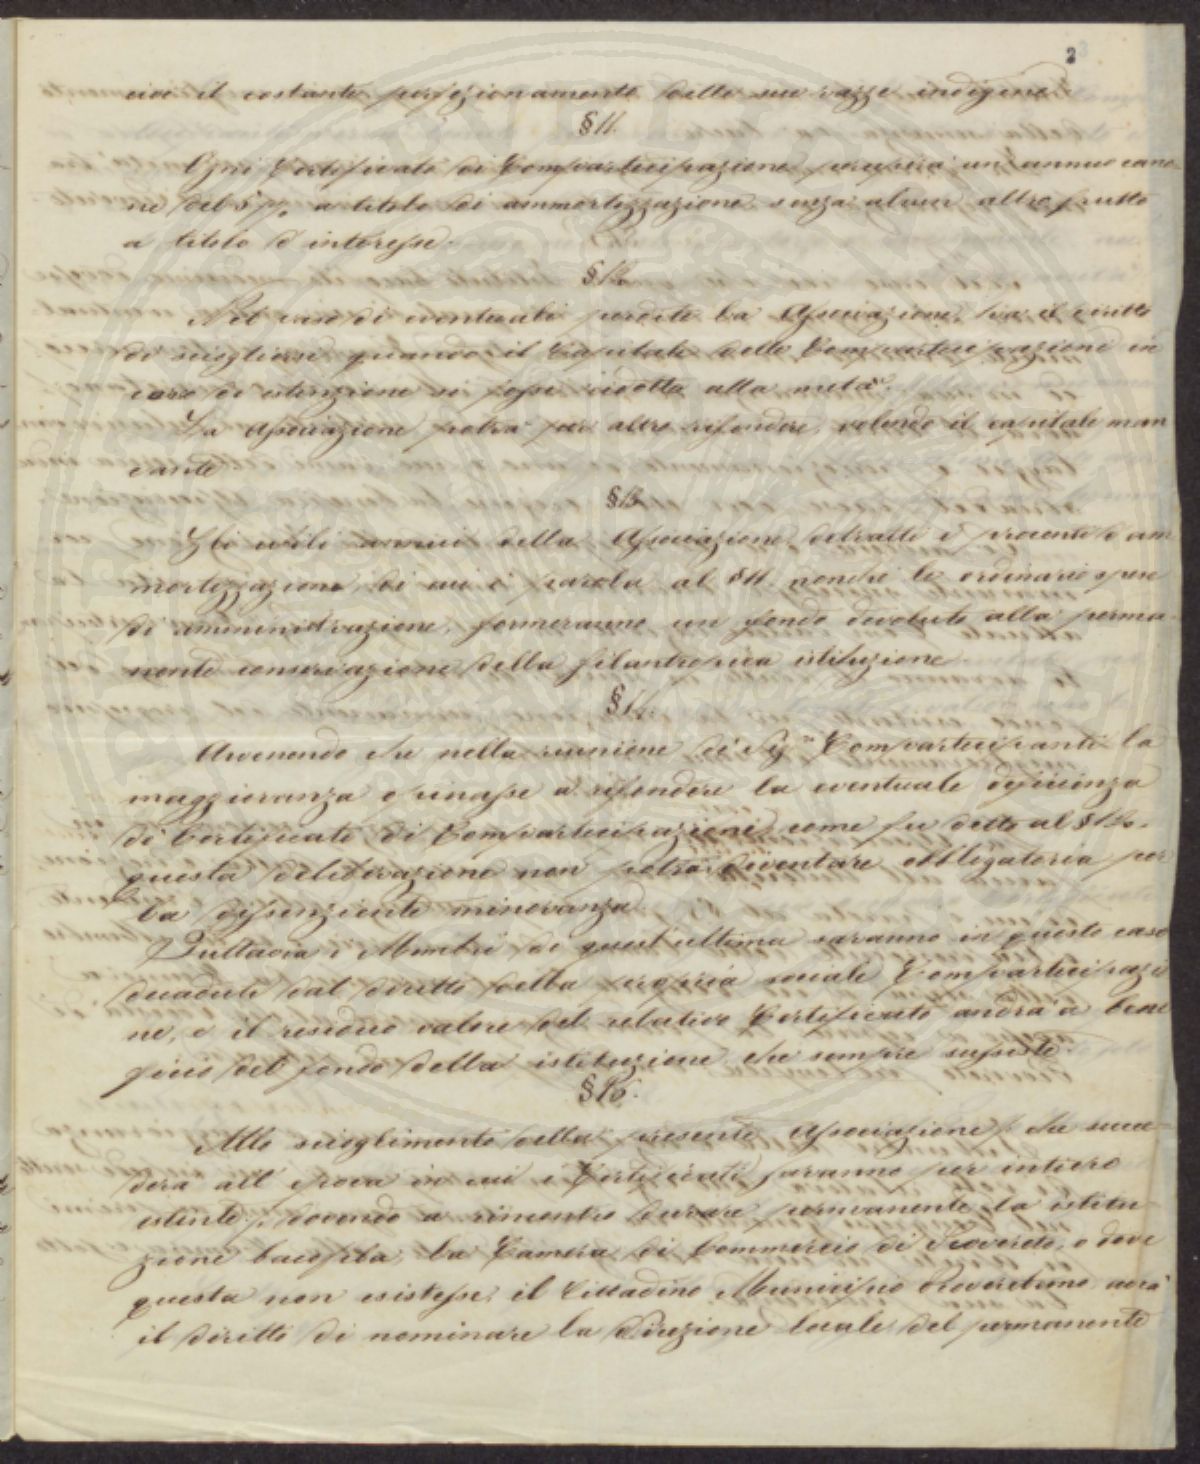 2
cioè il costante perfezionamento delle sue razze indigene.
§11.
Ogni Certificato di Compartecipazione percepirà un annuo cano-
ne del 5 p% a titolo di ammortizzazione senza alcun altro frutto
a titolo d'interesse.
§12.
Nel caso di eventuali perdite la Associazione ha il diritto
di sciogliersi quando il Capitale delle Compartecipazioni in
caso di estinzione si fosse ridotto alla metà.
La Associazione potrà per altro rifondere, volendo il capitale man
cante
§13.
Gli utili annui della Associazione, detratti i procenti d'am
mortizzazione, di cui è parola al §11. nonchè le ordinarie spese
di amministrazione, formeranno un fondo devoluto alla perma-
nente conservazione della filantropica istituzione.
§14.
Avvenendo che nella riunione dei Sig.ri Compartecipanti la
maggioranza opinasse a rifondere la eventuale deficienza
di Certificati di Compartecipazione, come fu detto al §12.
questa deliberazione non potrà diventare obbligatoria per
la dissenziente minoranza.
Tuttavia i Membri di quest'ultima saranno in questo caso
decaduti dal diritto della propria sociale Compartecipazio
ne, e il residuo valore del relativo Certificato andrà a bene
ficio del fondo della istituzione che sempre sussiste.
§15.
Allo scioglimento della presente Associazione, che succe-
derà all'epoca in cui i Certificati saranno per intiero
estinti, dovendo a rimontro durare permanente la istitu-
zione bacofila, la Camera di Commercio di Rovereto, o dove
questa non esistesse, il Cittadino Municipio Roveretano avrà
il diritto di nominare la Direzione locale del permanente